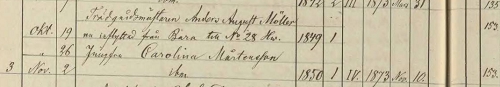 1872 2 III 1873 Mars 31 135
Trädgårdmästaren Anders August Möller
Okt. 19 inflyttad från Bara till No 28 Nov. 1849 1 153
" 26 Jungfru Carolina Mårtensson
3 Nov. 2 1850 1 IV. 1873 Nov. 10. 153.